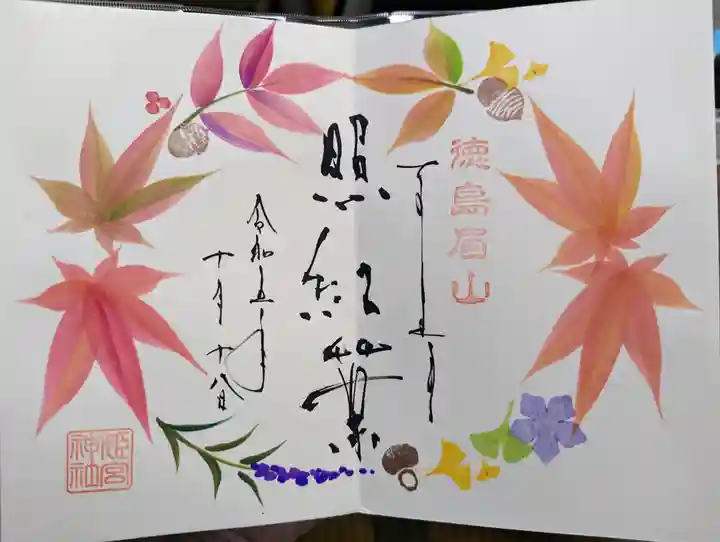 徳島眉山
照紅葉
令和五年
十月十八日
姫宮
神社